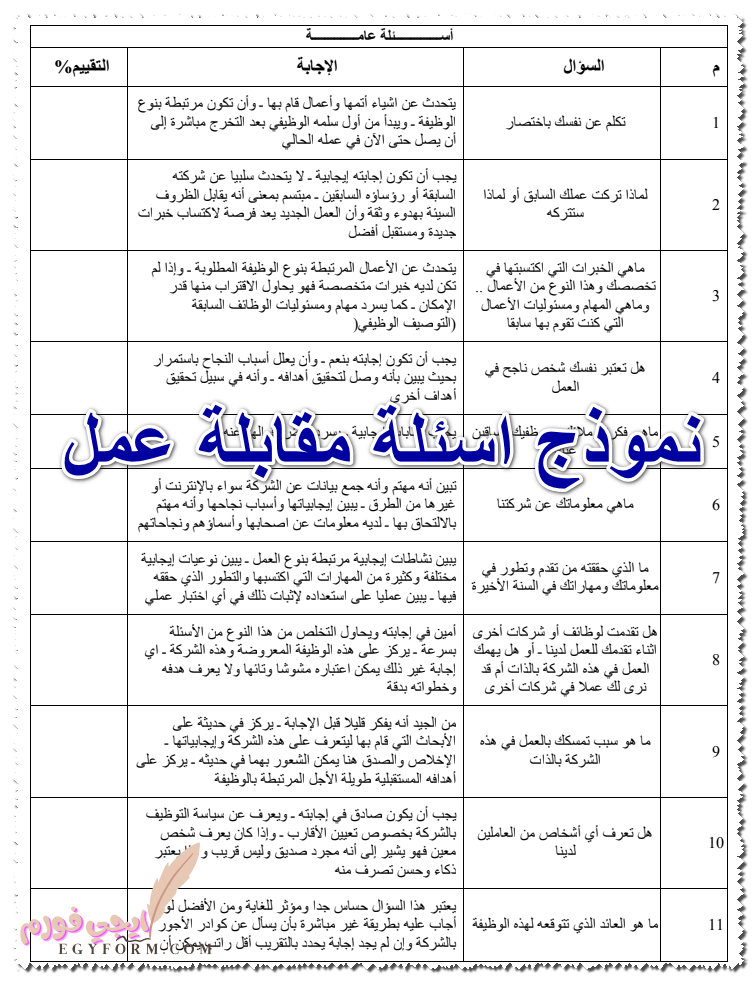 أســـــــئلة عامـــــــة
م السؤال الإجابة التقييم%
1
تكلم عن نفسك باختصار
يتحدث عن اشياء أتمها وأعمال قام بها ـ وأن تكون مرتبطة بنوع
الوظيفة ـ ويبدأ من أول سلمه الوظيفي بعد التخرج مباشرة إلى
أن يصل حتى الآن في عمله الحالي
2
لماذا تركت عملك السابق أو لماذا
ستتركه
يجب أن تكون إجابته إيجابية ـ لا يتحدث سلبيا عن شركته
السابقة أو رؤساؤه السابقين ـ مبتسم بمعنى أنه يقابل الظروف
السيئة بهدوء وثقة وأن العمل الجديد يعد فرصة لاكتساب خبرات
جديدة ومستقبل أفضل
3
ماهي الخبرات التي اكتسبتها في
تخصصك وهذا النوع من الأعمال ..
وماهي المهام ومسئوليات الأعمال
التي كنت تقوم بها سابقا
يتحدث عن الأعمال المرتبطة بنوع الوظيفة المطلوبة ـ وإذا لم
تكن لديه خبرات متخصصة فهو يحاول الاقتراب منها قدر
الإمكان ـ كما يسرد مهام ومسئوليات الوظائف السابقة
(التوصيف الوظيفي(
4
هل تعتبر نفسك شخص ناجح في
العمل
يجب أن تكون إجابته بنعم ـ وأن يعلل أسباب النجاح باستمرار
بحيث يبين بأنه وصل لتحقيق أهدافه ـ وأنه في سبيل تحقيق
أهداف أخرى
نموذج اسئلة مقابلة عمل
5
ماهي
6
ماهي معلوماتك عن شركتنا
تبين أنه مهتم وأنه جمع بيانات عن الشركة سواء بالإنترنت أو
غيرها من الطرق ـ يبين إيجابياتها وأسباب نجاحها وأنه مهتم
بالالتحاق بها ـ لديه معلومات عن اصحابها وأسماؤهم ونجاحاتهم
7
ما الذي حققته من تقدم وتطور في
معلوماتك ومهاراتك في السنة الأخيرة
يبين نشاطات إيجابية مرتبطة بنوع العمل ـ يبين نوعيات إيجابية
مختلفة وكثيرة من المهارات التي اكتسبها والتطور الذي حققه
فيها ـ يبين عمليا على استعداده لإثبات ذلك في أي اختبار عملي
8
هل تقدمت لوظائف أو شركات أخرى
اثناء تقدمك للعمل لدينا ـ أو هل يهمك
العمل في هذه الشركة بالذات أم قد
نرى لك عملا في شركات أخرى
أمين في إجابته ويحاول التخلص من هذا النوع من الأسئلة
بسرعة ـ يركز على هذه الوظيفة المعروضة وهذه الشركة ـ اي
إجابة غير ذلك يمكن اعتباره مشوشا وتائها ولا يعرف هدفه
وخطواته بدقة
9
ما هو سبب تمسكك بالعمل في هذه
الشركة بالذات
من الجيد أنه يفكر قليلا قبل الإجابة ـ يركز في حديثة على
الأبحاث التي قام بها ليتعرف على هذه الشركة وإيجابياتها ـ
الإخلاص والصدق هنا يمكن الشعور بهما في حديثه ـ يركز على
أهدافه المستقبلية طويلة الأجل المرتبطة بالوظيفة
10
هل تعرف أي أشخاص من العاملين
لدينا
يجب أن يكون صادق في إجابته ـ ويعرف عن سياسة التوظيف
بالشركة بخصوص تعيين الأقارب ـ وإذا كان يعرف شخص
معين فهو يشير إلى أنه مجرد صديق وليس قريب يعتبر
ذكاء وحسن تصرف منه
11
ما هو العائد الذي تتوقعه لهذه الوظيفة
يعتبر هذا السؤال حساس جدا ومؤثر للغاية ومن الأفضل لو
أجاب عليه بطريقة غير مباشرة بأن يسأل عن كوادر الأجور
بالشركة وإن لم يجد إجابة يحدد بالتقريب أقل راتب يمكن أن
ايجي فورم
EGYFORM.COM